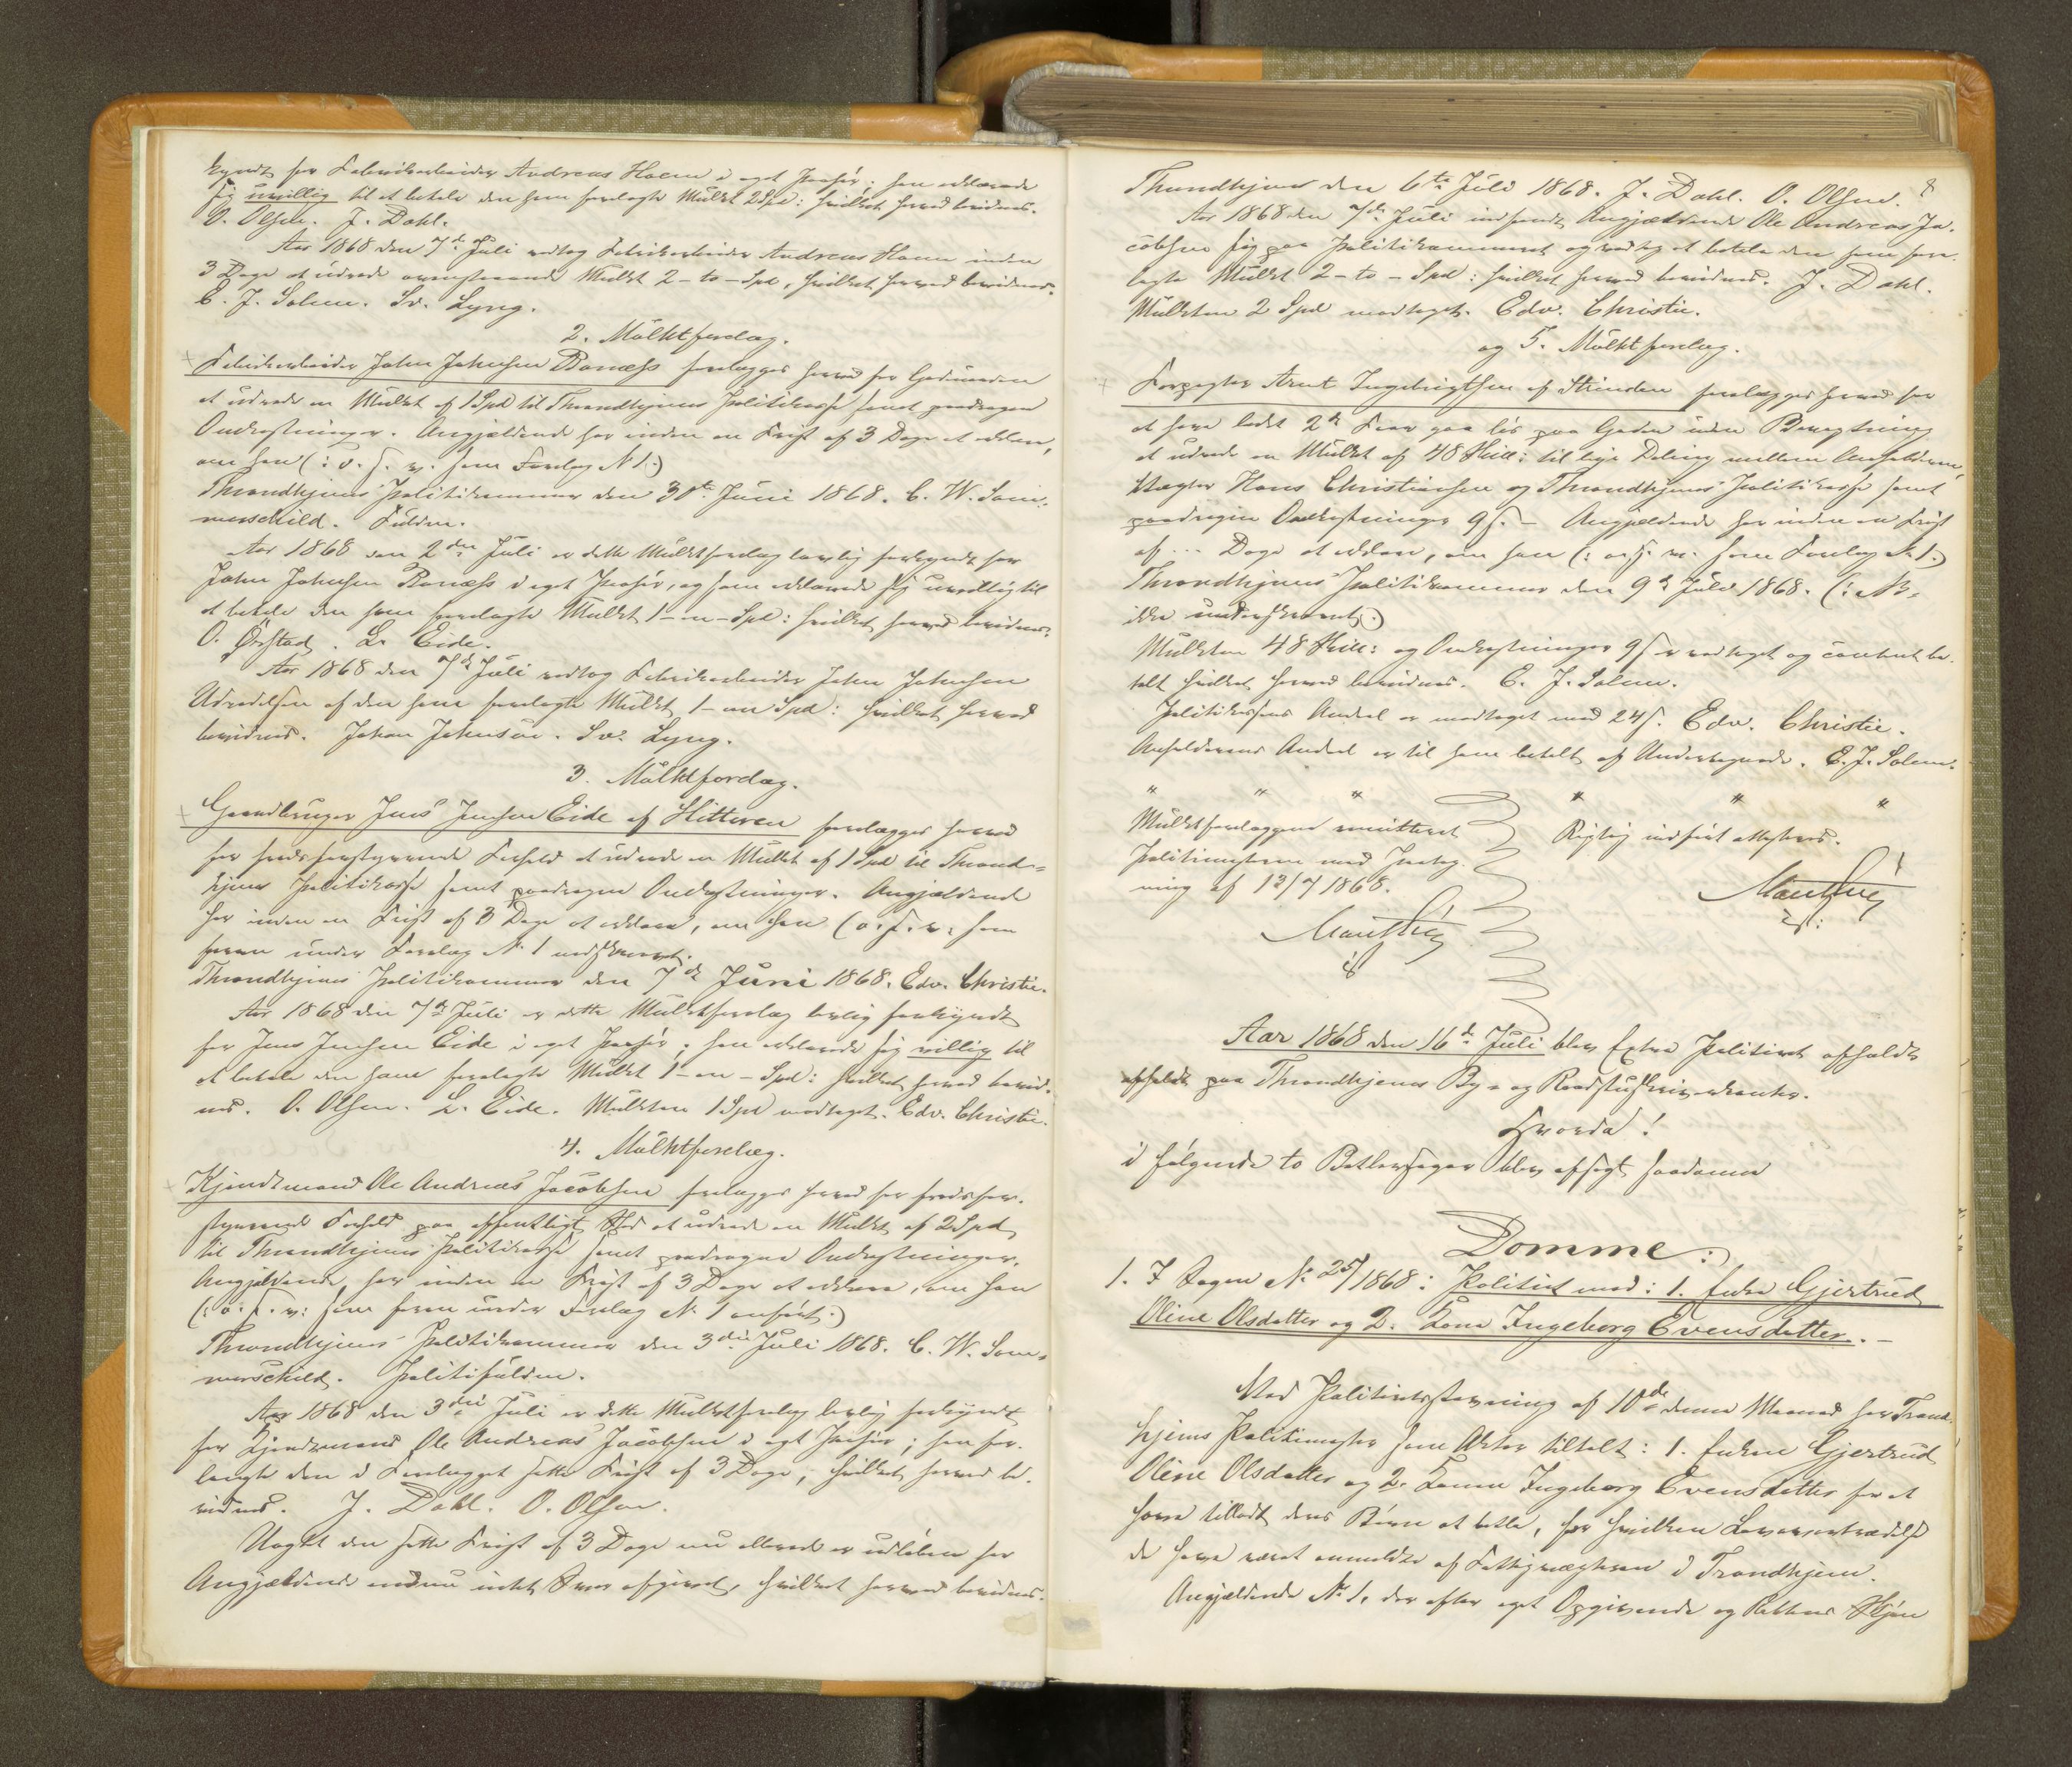 kyndt for Fabrikarbeider Andreas Holm i eget Paahør; han erklærede
sig uvillig til at betale den ham forelagte Mulkt 2 Spd: hvilket herved bevidnes.
O. Olsen. J. Dahl.
Aar 1868 den 7de Juli vedtog Fabrikarbeider Andreas Holm inden
3 Dage at udrede ovenstaaende Mulkt 2 - to - Spd, hvilket herved bevidnes.
E. J. Solem. Sv. Lyng.
2. Mulktforelæg.
Fabrikarbeider Johan Johnsen Ranæss forelægges herved for Gadeuorden
at udrede en Mulkt af 1 Spd til Throndhjems Politikasse samt paadragne
Omkostninger. Angjældende har inden en Frist af 3 Dage at erklære,
om han (: o. s. v. som Forelæg N 1.)
Throndhjems Politikammer den 30te Juni 1868. C. W. Som-
merschild. Fuldm.
Aar 1868 den 2den Juli er dette Mulktforelæg lovlig forkyndt for
Johan Johnsen Ranæss i eget Paahør, og han erklærede sig uvillig til
at betale den ham forelagte Mulkt 1 - en - Spd: hvilket herved bevidnes.
O. Ørstad. L. Eide.
Aar 1868 den 7de Juli vedtog Fabrikarbeider Johan Johnsen
Udredelsen af den ham forelagte Mulkt 1 - en Spd: hvilket herved
bevidnes. Johan Johnsøn. Sv. Lyng.
3. Mulktforelæg.
Gaardbruger Jens Jensen Eide af Hitteren forelægges herved
for fredsforstyrrende Forhold at udrede en Mulkt af 1 Spd til Thrond-
hjems Politikasse samt paadragne Omkostninger. Angjældende
har inden en Frist af 3 Dage at erklære, om han (o. s. v. som
foran under Forelæg N. 1 indskrevet.
Throndhjems Politikammer den 7de Juni 1868. Edv. Christie.
Aar 1868 den 7de Juli er dette Mulktforelæg lovlig forkyndt
for Jens Jensen Eide i eget Paahør; han erklærede sig villig til
at betale den ham forelagte Mulkt 1 - en - Spd: hvilket herved bevid-
nes. O. Olsen. L. Eide. Mulkten 1 Spd modtaget. Edv. Christie.
4. Mulktforelæg.
Kjendtmand Ole Andreas Jacobsen forelægges herved for fredsfor-
styrrende Forhold paa offentligt Sted at udrede en Mulkt af 2 Spd
til Throndhjems Politikasse samt paadragne Omkostninger.
Angjældende har inden en Frist af 3 Dage at erklære, om han
(: o. s. v: som foran under Forelæg N. 1 anført.)
Throndhjems Politikammer den 3die Juli 1868. C. W. Som-
merschild. Politifuldm.
Aar 1868 den 3die Juli er dette Mulktforelæg lovlig forkyndt
for Kjendtmand Ole Andreas Jacobsen i eget Paahør; han for-
langte den i Forelægget satte Frist af 3 Dage; hvilket herved be-
vidnes. J. Dahl. O. Olsen.
Uagtet den satte Frist af 3 Dage nu allerede er udløben har
Angjældende endnu intet Svar afgivet, hvilket herved bevidnes.
8
Throndhjem den 6te Juli 1868. J. Dahl. O. Olsen.
Aar 1868 den 7de Juli indfandt Angjældende Ole Andreas Ja-
cobsen sig paa Politikammeret og vedtog at betale den ham fore-
lagte Mulkt 2 - to - Spd: hvilket herved bevidnes. J. Dahl.
Mulkten 2 Spd modtaget. Edv. Christie.
og 5. Mulktforelæg.
Forpagter Arnt Ingebrigtsen af Strinden forelægges herved for
at have ladet 2de Kiør gaa løs paa Gaden uden Bevogtning
at udrede en Mulkt af 48 Skill: til lige Deling mellem Anholderen,
Vægter Hans Christiansen og Throndhjems Politikasse samt
paadragne Omkostninger 9 s. - Angjældende har inden en Frist
af ... Dage at erklære, om han (: o. s. v. som Forelæg N. 1.)
Throndhjems Politikammer den 9de Juli 1868. (: NB.
ikke underskrevet.)
Mulkten 48 Skill: og Omkostninger 9 s er vedtaget og contant be-
talt hvilket herved bevidnes. E. J. Solem.
Politikassens Andel er modtaget med 24 s. Edv. Christie.
Anholderens Andel er til ham betalt af Undertegnede. E. J. Solem.
" " " " " "
Mulktforelæggene remitteret
Politimesteren med Paateg-
ning af 13/7 1868.
Rigtig indført attesteres.
Aar 1868 den 16de Juli blev Extra Politiret afholdt
afholdt paa Throndhjems By- og Raadstuskriverkontor.
Hvorda!
i følgende to Betlersager blev afsagt saadanne
Domme:
1. I Sagen N. 25/1868: Politiet mod: 1. Enke Gjertrud
Oline Olsdatter og 2. Kone Ingeborg Evensdatter. -
Ved Politiretsstævning af 10de denne Maaned har Trond-
hjems Politimester som Aktor tiltalt: 1. Enken Gjertrud
Oline Olsdatter og 2. Konen Ingeborg Evensdatter for at
have tilladt deres Børn at betle, for hvilken Lovovertrædelse
de have været anmeldte af Fattigvægteren i Trondhjem.
Angjældende N. 1, der efter eget Opgivende og Rettens Skjøn